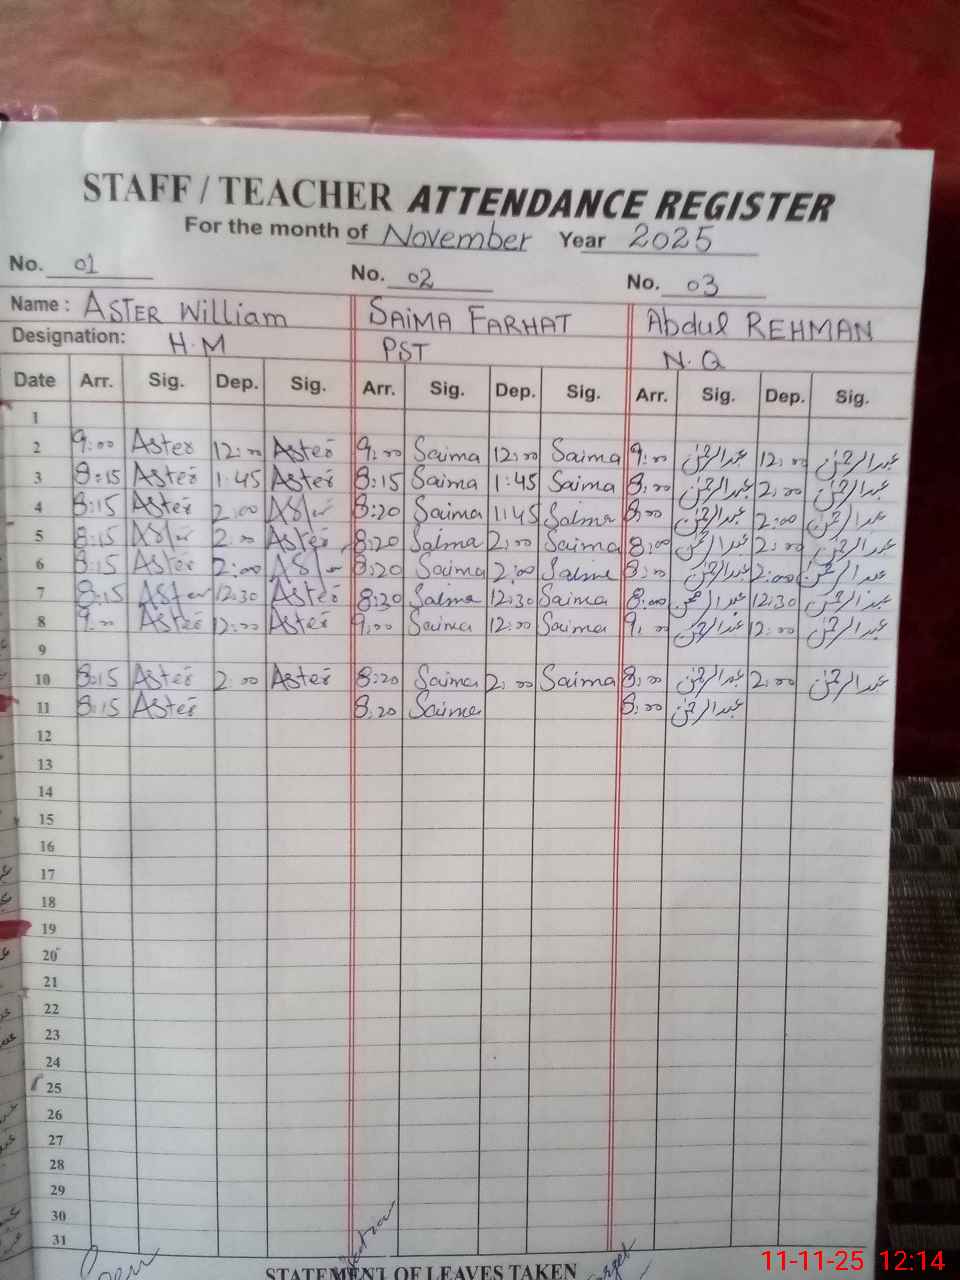 STAFF / TEACHER ATTENDANCE REGISTER
For the month of November Year 2025
No. 01 No. 02 No. 03
Name : ASTER William SAIMA FARHAT Abdul REHMAN
Designation: H.M PST N.Q
Date Arr. Sig. Dep. Sig. Arr. Sig. Dep. Sig. Arr. Sig. Dep. Sig.
1
2 9:00 Aster 12:00 Aster 9:00 Saima 12:00 Saima 9:00 عبدالرحمٰن 12:00 عبدالرحمٰن
3 8:15 Aster 1:45 Aster 8:15 Saima 1:45 Saima 8:00 عبدالرحمٰن 2:00 عبدالرحمٰن
4 8:15 Aster 2:00 Aster 8:20 Saima 1:45 Saima 8:00 عبدالرحمٰن 2:00 عبدالرحمٰن
5 8:15 Aster 2:00 Aster 8:20 Saima 2:00 Saima 8:00 عبدالرحمٰن 2:00 عبدالرحمٰن
6 8:15 Aster 2:00 Aster 8:20 Saima 2:00 Saima 8:00 عبدالرحمٰن 2:00 عبدالرحمٰن
7 8:15 Aster 12:30 Aster 8:30 Saima 12:30 Saima 8:00 عبدالرحمٰن 12:30 عبدالرحمٰن
8 9:00 Aster 12:00 Aster 9:00 Saima 12:00 Saima 9:00 عبدالرحمٰن 12:00 عبدالرحمٰن
9
10 8:15 Aster 2:00 Aster 8:20 Saima 2:00 Saima 8:00 عبدالرحمٰن 2:00 عبدالرحمٰن
11 8:15 Aster 8:20 Saima 8:00 عبدالرحمٰن
12
13
14
15
16
17
18
19
20
21
22
23
24
25
26
27
28
29
30
31
STATEMENT OF LEAVES TAKEN
11-11-25 12:14